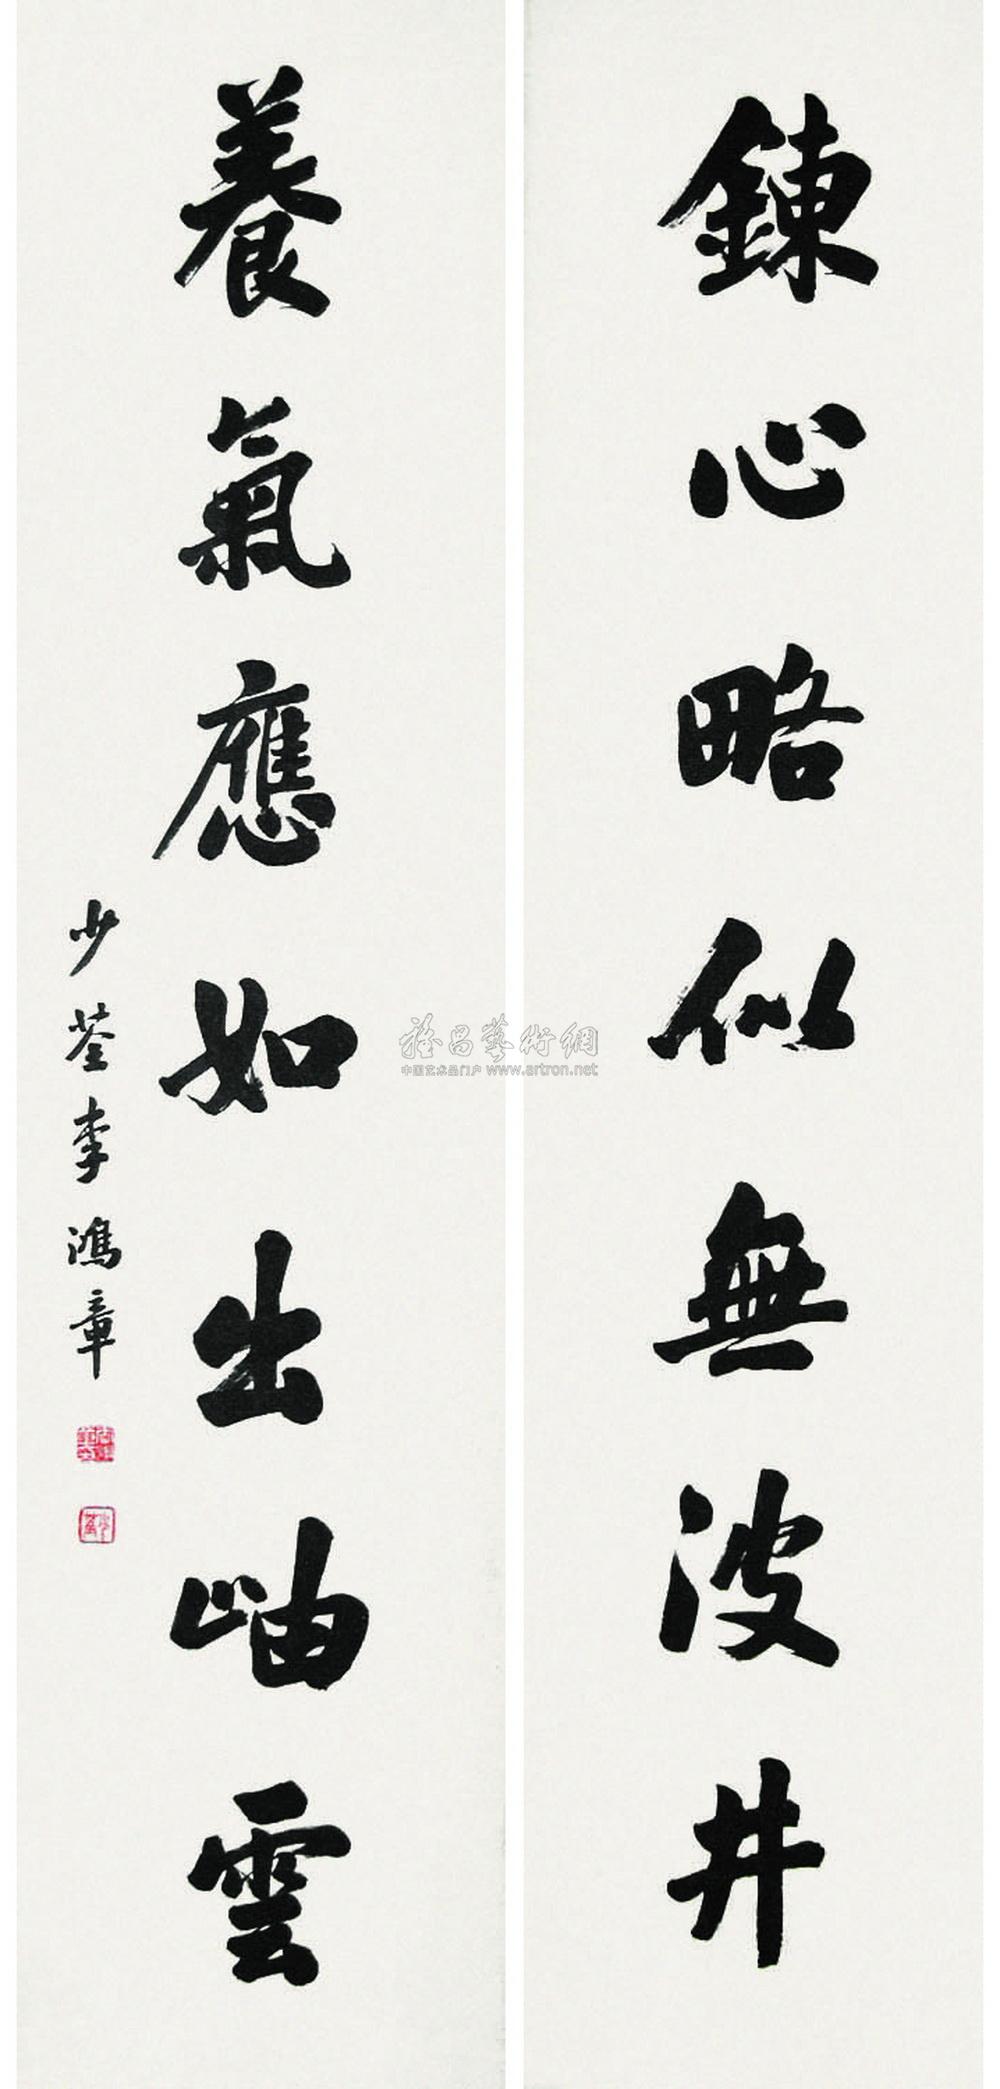 鍊心略似無波井
養氣應如出岫雲
少荃李鴻章
雅昌藝術網
中国艺术品门户 www.artron.net